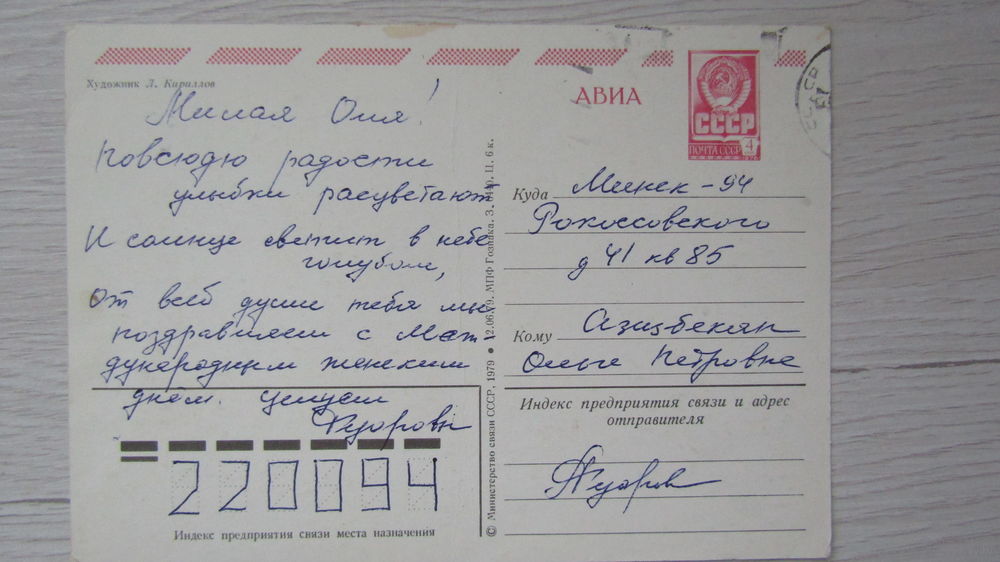 Художник Л. Кириллов
Милая Оля!
Повсюдю радости
улыбки расцветают
И солнце светит в небе
голубом,
От всей души тебя мы
поздравляем с Меж-
дународным женским
днём. Целуем
220094
Индекс предприятия связи места назначения
© Министерство связи СССР, 1979 • 12.06.79. МПФ Гознака. З. Ц. 6 к.
АВИА
СССР
ПОЧТА СССР 4
СССР
Куда Минск-94
Рокоссовского
д 41 кв 85
Кому
Ольге Петровне
Индекс предприятия связи и адрес
отправителя